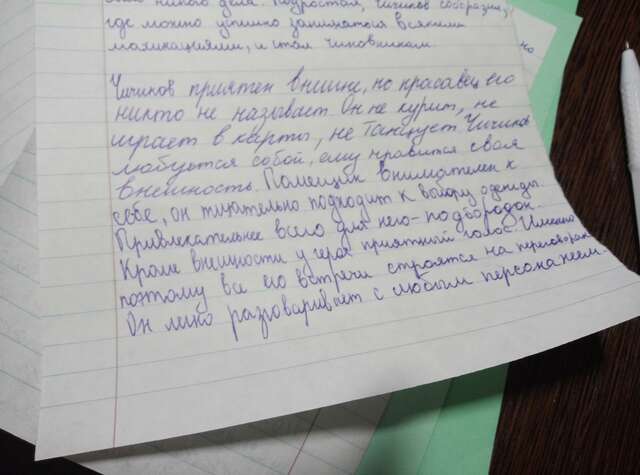 никого дела. Подростая, Чичиков сообразил,
где можно успешно заниматься всякими
махикациями, и стал чиновником.
Чичиков приятен внешне, но красавцем его
никто не называет. Он не курит, не
играет в карты, не танцует. Чичиков
любуется собой, ему нравится своя
внешность. Помещик внимателен к
себе, он тщательно подходит к выбору одежды.
Привлекательнее всего для него - подбородок.
Кроме внешности у героя приятный голос. Именно
поэтому все его встречи строятся на переговорах.
Он легко разговаривает с любым персонажем.
но